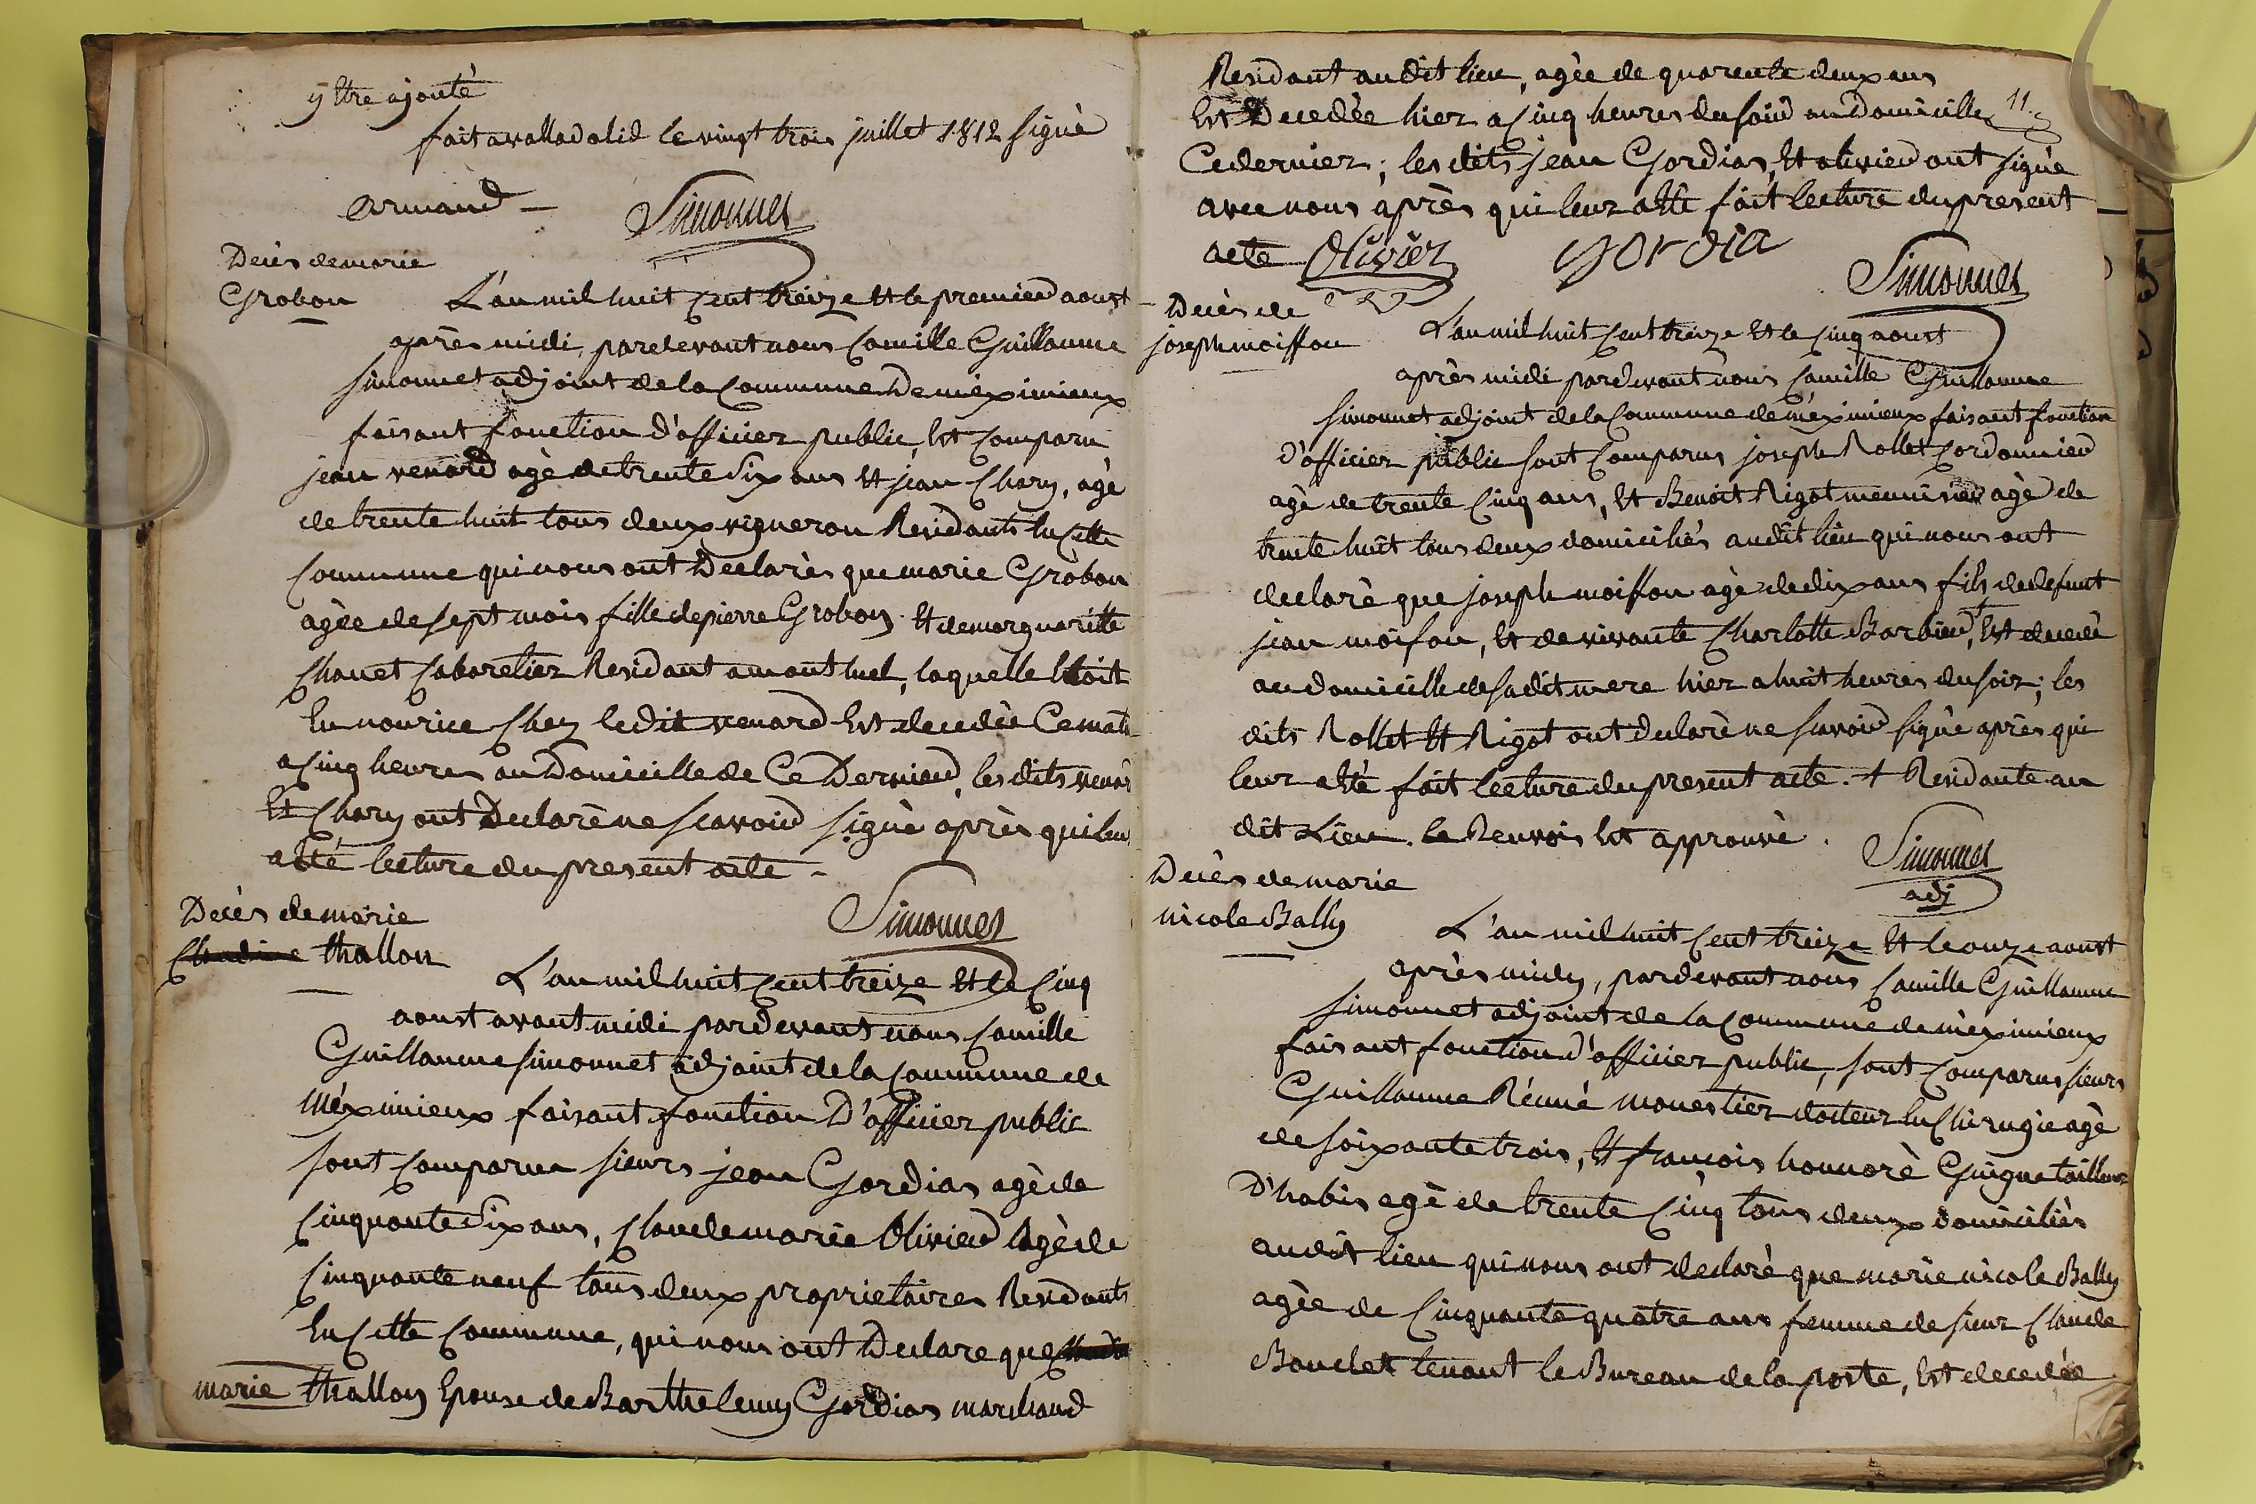 ÿ Etre ajouté
fait a valladolid le vingt trois juillet 1812 signé
armand —
Simonnet
Decès de marie
Grobon
L'an mil huit cent treize Et le premier aoust
après midi, pardevant nous Camille Guillaume
Simonnet adjoint de la commune De méximieux
faisant fonction d'officier public, Est comparu
jean renard agé de trente Six ans Et jean Chary, agé
de trente huit tous deux vigneron Residants En Cette
Commune qui nous ont Declarés que marie Grobon
agée de sept mois fille de pierre Grobon Et de margueritte
Chanet Cabaretier Residant a montluel, laquelle Etoit
En nourice Chez le dit renard Est decedée Ce matin
a Cinq heures au Domicille de Ce Dernier, les dits renard
Et Chary ont Declaré ne scavoir signé après qui leur
a Eté lecture du present acte —
Simonnet
Decès de marie
Claudine thallon
L'an mil huit cent treize Et le Cinq
aoust avant midi pardevant nous Camille
Guillaume Simonnet adjoint de la Commune de
méximieux faisant fonction D'officier public
sont Comparu sieurs jean Gordian agé de
Cinquante Six ans, Claude marie Olivier Agé de
Cinquante neuf tous deux proprietaires Residants
En Cette Commune, qui nous ont Declare que
marie thallon Epouse de Barthelemy Gordian marchand
Residant audit lieu, agée de quarente deux ans
Est Decedée hier a Cinq heures du soir au Domicille
11
Ce dernier; les dits jean Gordian, Et olivier ont signé
avec nous après qui leur a Eté fait lecture du present
acte
Olivier
gordia
Simonnet
Decès de
joseph moiffon
L'an mil huit cent treize Et le Cinq aoust
après midi pardevant nous Camille Guillaume
Simonnet adjoint de la Commune de méximieux faisant fonction
d'officier public sont Comparus joseph Rollet Cordonnier
agé de trente Cinq ans, Et Benoit Rigot menuisier agé de
trente huit tous deux domiciliés audit lieu qui nous ont
declaré que joseph moiffon agé de dix ans fils de defunt
jean moifon, Et de vivante Charlotte Barbier +, Est decedé
au domicille de sa dit mere hier a huit heures du soir; les
dits Rollet Et Rigot ont declaré ne savoir signé après qui
leur a Eté fait lecture du present acte. + Residante au
dit Lieu. le Renvois Est approuvé.
Simonnet
adj
Decès de marie
nicole Bally
L'an mil huit cent treize Et le onze aoust
après midy, pardevant nous Camille Guillaume
Simonnet adjoint de la Commune de méximieux
faisant fonction d'officier public, sont Comparus sieurs
Guillaume Rénné monestier docteur En Chirugie agé
de soixante trois, Et francois honnoré Guigue tailleur
D'habis agé de trente Cinq tous deux domiciliés
audit lieu qui nous ont declaré que marie nicole Bally
agée de Cinquante quatre ans femme de sieur Claude
Bouchet tenant le Bureau de la poste, Est decedée